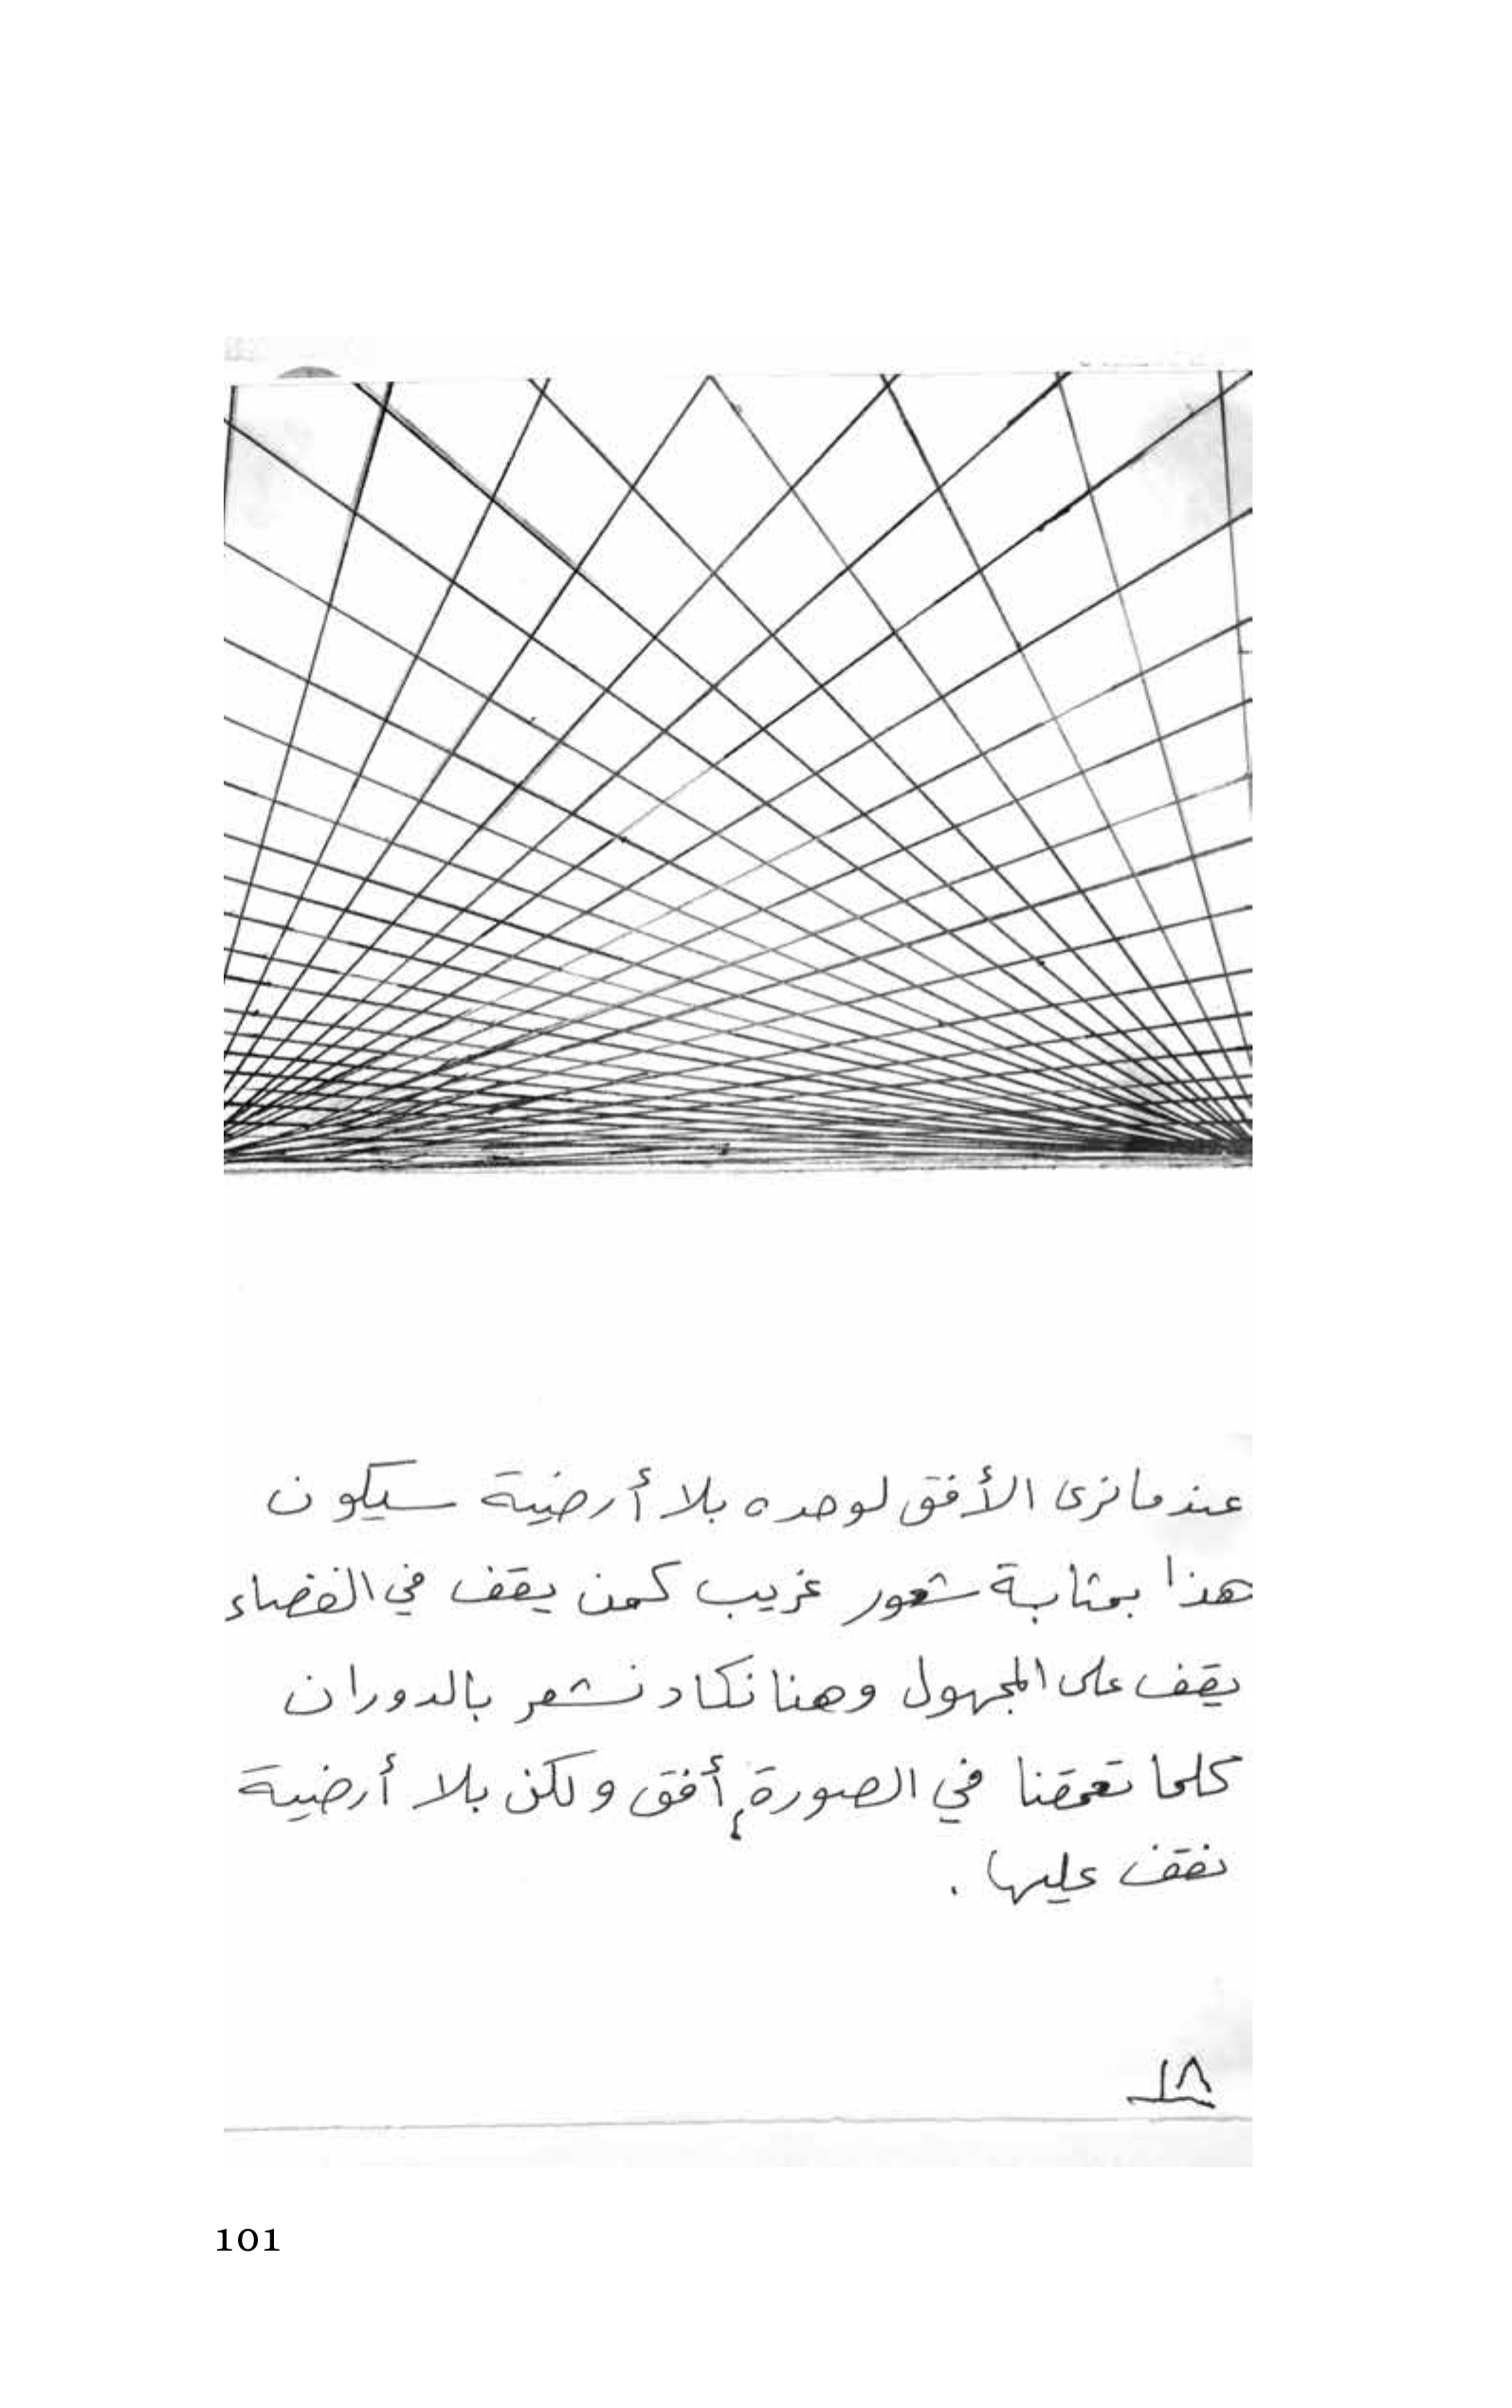 عندما نرى الأفق لوحده بلا أرضية سيكون
هذا بمثابة شعور غريب كمن يقف في الفضاء
يقف على المجهول وهنا نكاد نشعر بالدوران
كلما تعمقنا في الصورة، أفق ولكن بلا أرضية
نقف عليها .
١٨
101